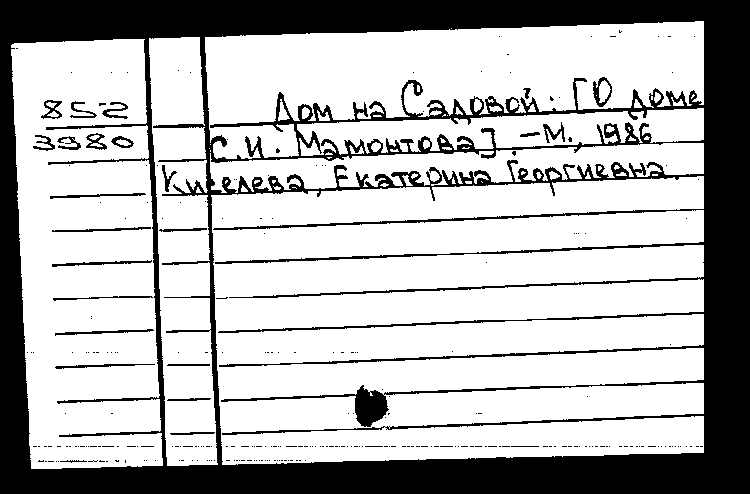 852
3980
Дом на Садовой: [О доме
С.И. Мамонтова]. – М., 1986.
Киселева, Екатерина Георгиевна.